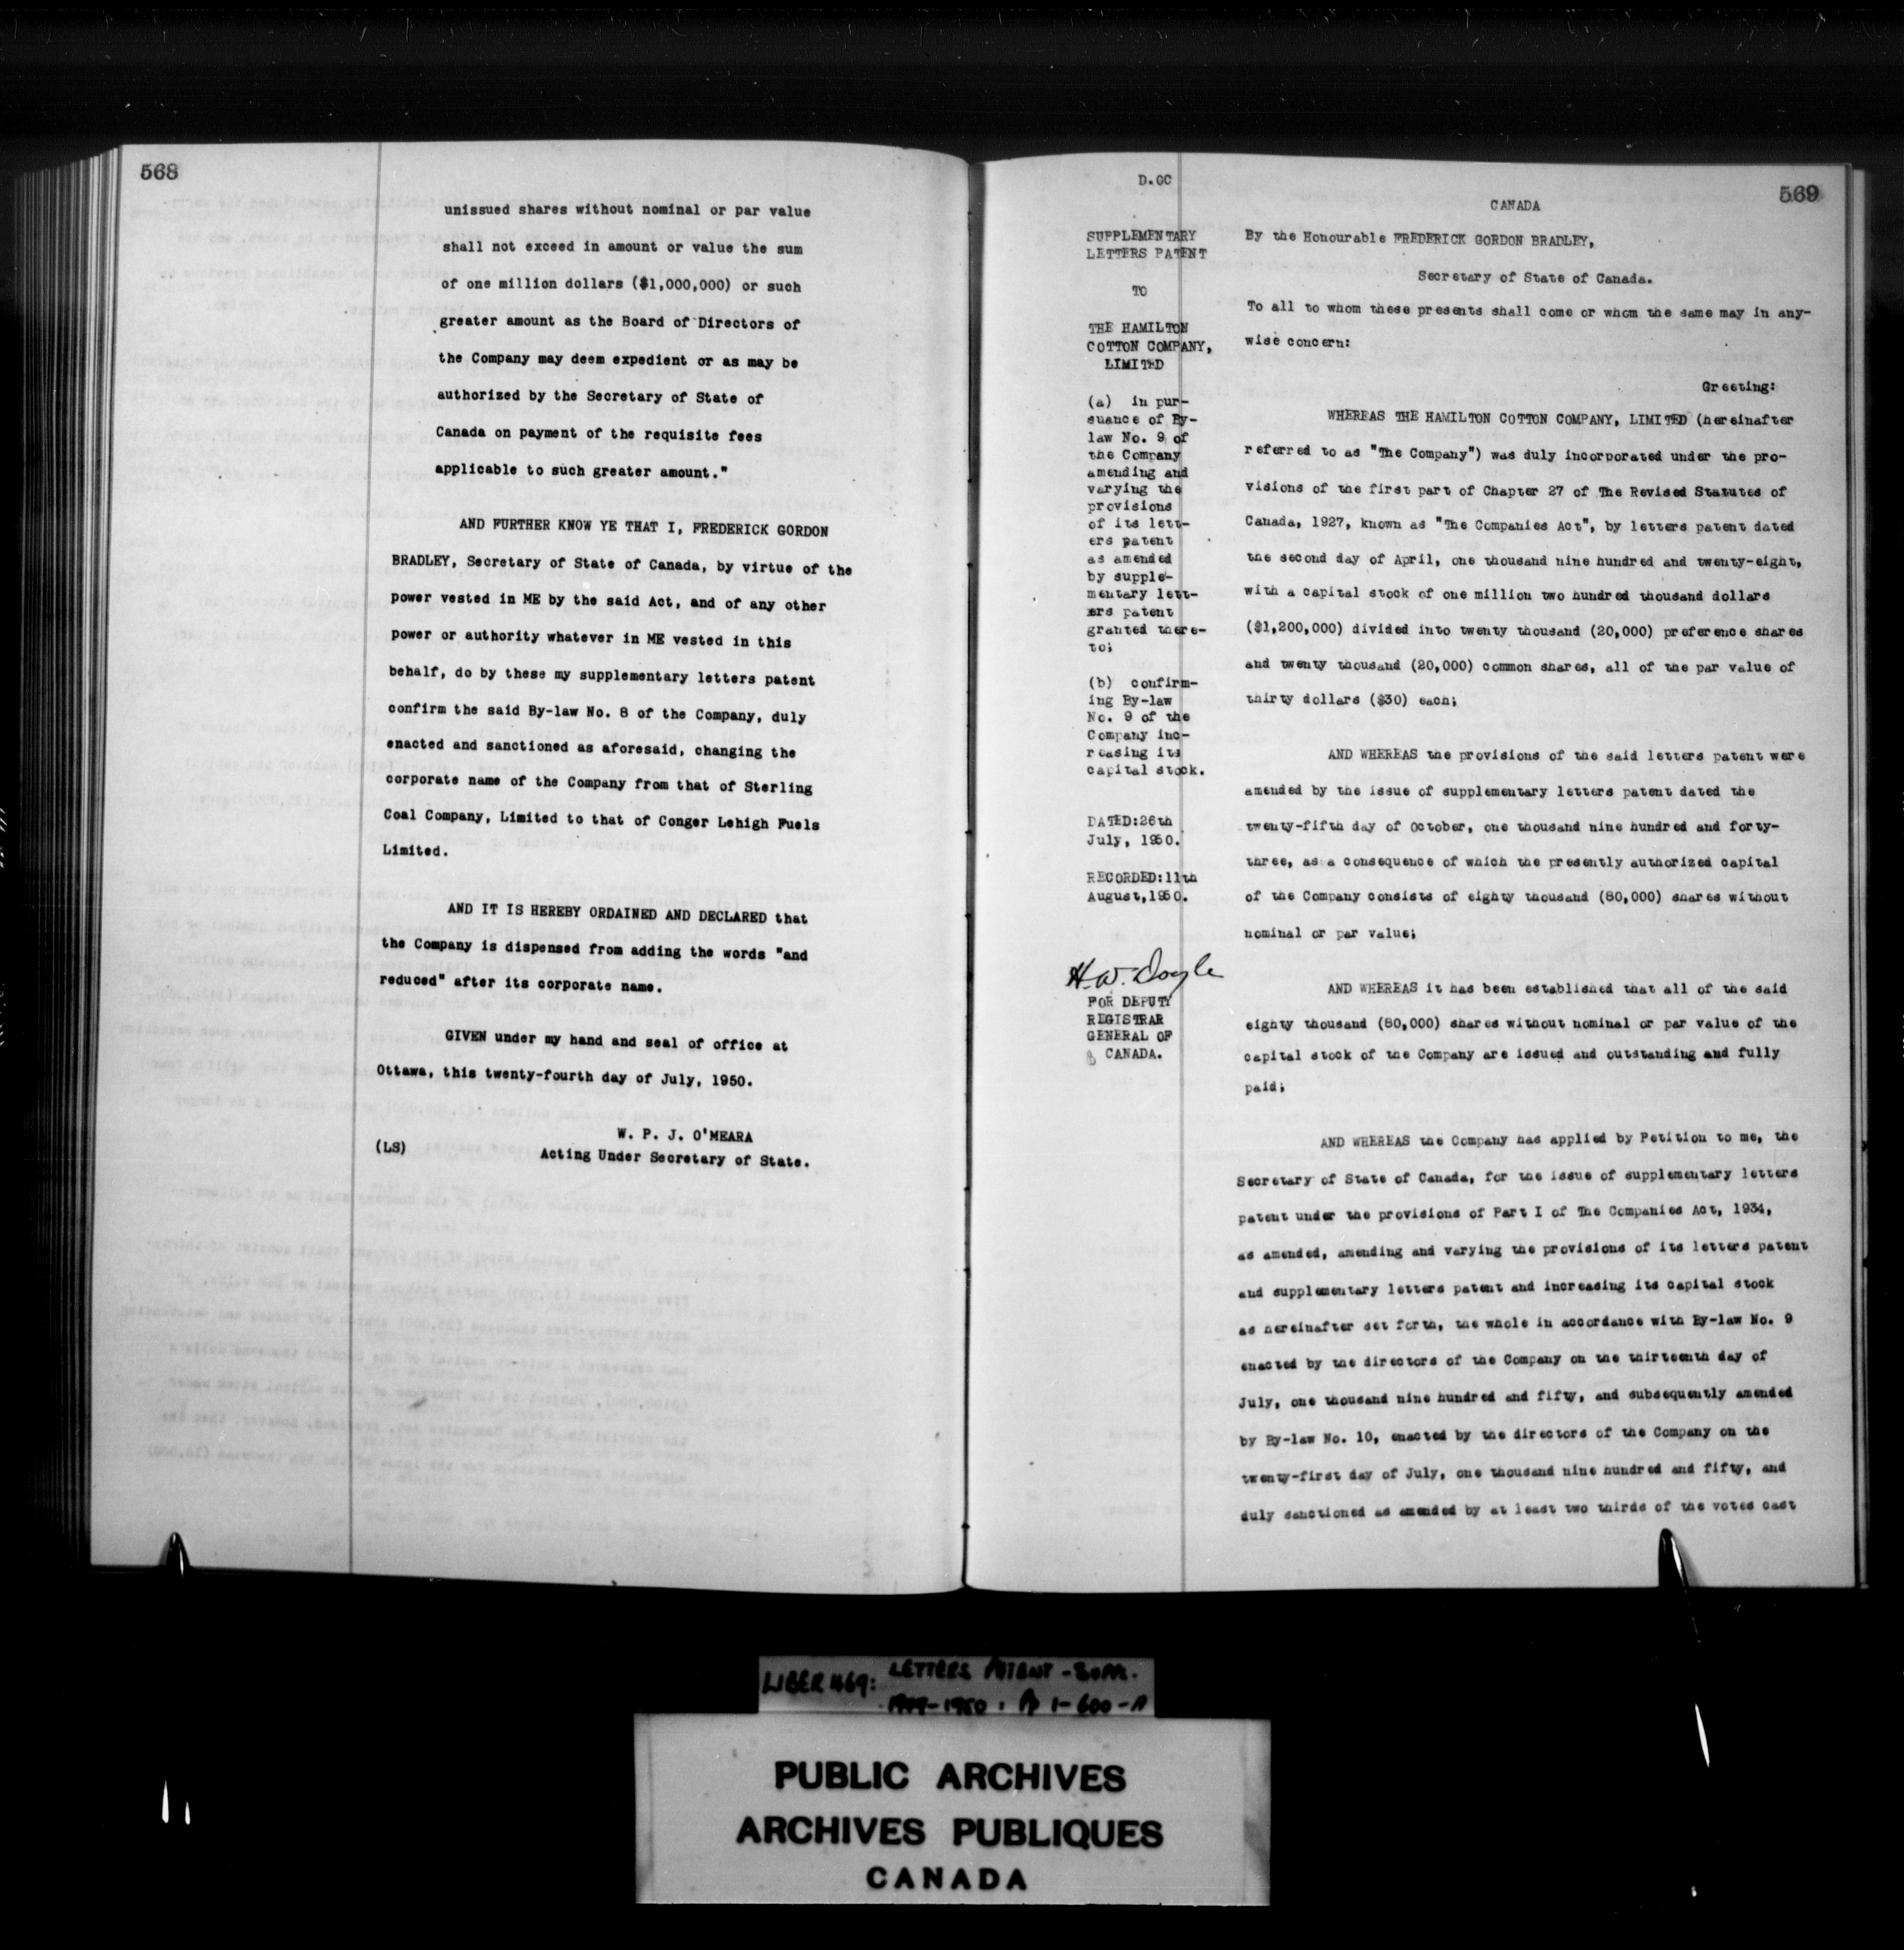 568
unissued shares without nominal or par value
shall not exceed in amount or value the sum
of one million dollars ($1,000,000) or such
greater amount as the Board of Directors of
the Company may deem expedient or as may be
authorized by the Secretary of State of
Canada on payment of the requisite fees
applicable to such greater amount."
AND FURTHER KNOW YE THAT I, FREDERICK GORDON
BRADLEY, Secretary of State of Canada, by virtue of the
power vested in ME by the said Act, and of any other
power or authority whatever in ME vested in this
behalf, do by these my supplementary letters patent
confirm the said By-law No. 8 of the Company, duly
enacted and sanctioned as aforesaid, changing the
corporate name of the Company from that of Sterling
Coal Company, Limited to that of Conger Lehigh Fuels
Limited.
AND IT IS HEREBY ORDAINED AND DECLARED that
the Company is dispensed from adding the words "and
reduced" after its corporate name.
GIVEN under my hand and seal of office at
Ottawa, this twenty-fourth day of July, 1950.
W. P. J. O'MEARA
(LS)
Acting Under Secretary of State.
D.GC
569
SUPPLEMENTARY
LETTERS PATENT
TO
THE HAMILTON
COTTON COMPANY,
LIMITED
(a) in pur-
suance of By-
law No. 9 of
the Company
amending and
varying the
provisions
of its lett-
ers patent
as amended
by supple-
mentary lett-
ers patent
granted there-
to;
(b) confirm-
ing By-law
No. 9 of the
Company inc-
reasing its
capital stock.
DATED:26th
July, 1950.
RECORDED:11th
August,1950.
H.W. Doyle
FOR DEPUTY
REGISTRAR
GENERAL OF
CANADA.
CANADA
By the Honourable FREDERICK GORDON BRADLEY,
Secretary of State of Canada.
To all to whom these presents shall come or whom the same may in any-
wise concern:
Greeting:
WHEREAS THE HAMILTON COTTON COMPANY, LIMITED (hereinafter
referred to as "The Company") was duly incorporated under the pro-
visions of the first part of Chapter 27 of The Revised Statutes of
Canada, 1927, known as "The Companies Act", by letters patent dated
the second day of April, one thousand nine hundred and twenty-eight,
with a capital stock of one million two hundred thousand dollars
($1,200,000) divided into twenty thousand (20,000) preference shares
and twenty thousand (20,000) common shares, all of the par value of
thirty dollars ($30) each;
AND WHEREAS the provisions of the said letters patent were
amended by the issue of supplementary letters patent dated the
twenty-fifth day of October, one thousand nine hundred and forty-
three, as a consequence of which the presently authorized capital
of the Company consists of eighty thousand (80,000) shares without
nominal or par value;
AND WHEREAS it has been established that all of the said
eighty thousand (80,000) shares without nominal or par value of the
capital stock of the Company are issued and outstanding and fully
paid;
AND WHEREAS the Company has applied by Petition to me, the
Secretary of State of Canada, for the issue of supplementary letters
patent under the provisions of Part I of The Companies Act, 1934,
as amended, amending and varying the provisions of its letters patent
and supplementary letters patent and increasing its capital stock
as hereinafter set forth, the whole in accordance with By-law No. 9
enacted by the directors of the Company on the thirteenth day of
July, one thousand nine hundred and fifty, and subsequently amended
by By-law No. 10, enacted by the directors of the Company on the
twenty-first day of July, one thousand nine hundred and fifty, and
duly sanctioned as amended by at least two thirds of the votes cast
LIBER 469: LETTERS PATENT - SUPP.
1949-1950 : Pp 1-600-A
PUBLIC ARCHIVES
ARCHIVES PUBLIQUES
CANADA